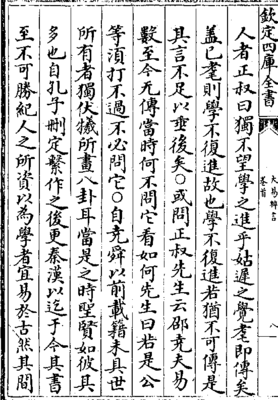 欽定四庫全書
大易粹言
卷首
八
人者正叔曰獨不望學之進乎姑遲之覺耄即傳矣
蓋已耄則學不復進故也學不復進若猶不可傳是
其言不足以垂後矣○或問正叔先生云邵堯夫易
數至今无傳當時何不問它看如何先生曰若是公
等須打不過不必問它○自堯舜以前載籍未具世
所有者獨伏犧所畫八卦耳當是之時聖賢如彼其
多也自孔子刪定繫作之後更秦漢以迄于今其書
至不可勝紀人之所資以為學者宜易於古然其間